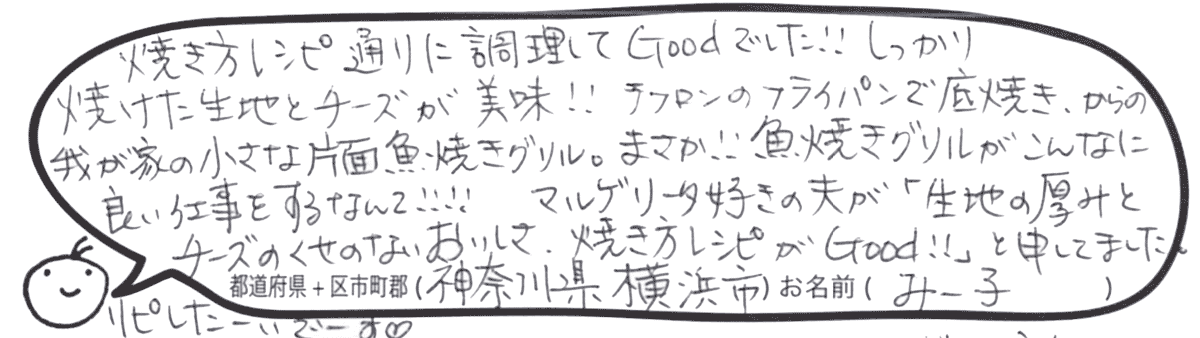 焼き方レシピ通りに調理してGoodでした!! しっかり
焼けた生地とチーズが美味!! テフロンのフライパンで底焼き、からの
我が家の小さな片面魚焼きグリル。まさか!! 魚焼きグリルがこんなに
良い仕事をするなんて!!!! マルゲリータ好きの夫が「生地の厚みと
チーズのくせのないおいしさ、焼き方レシピがGood!!」と申してました。
都道府県+区市町郡(神奈川県横浜市)お名前(みー子)
リピしたーいでーす♡